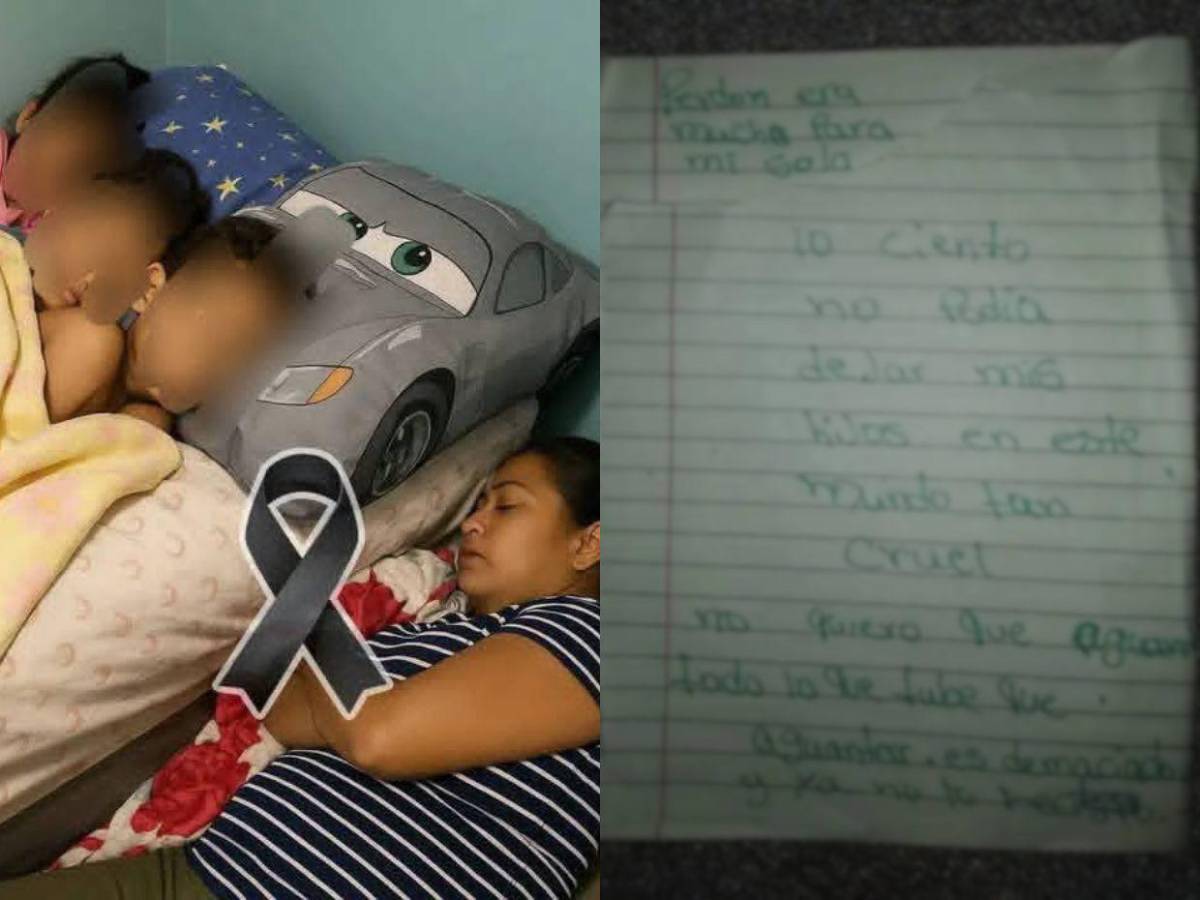 Perdon era
mucho Para
mi sola
lo Ciento
no Podia
deJar mis
hiJos en este
Mundo tan
Cruel
no quiero que aguan
todo lo que tube que
aguantar. es demaciado
y Ya no lo